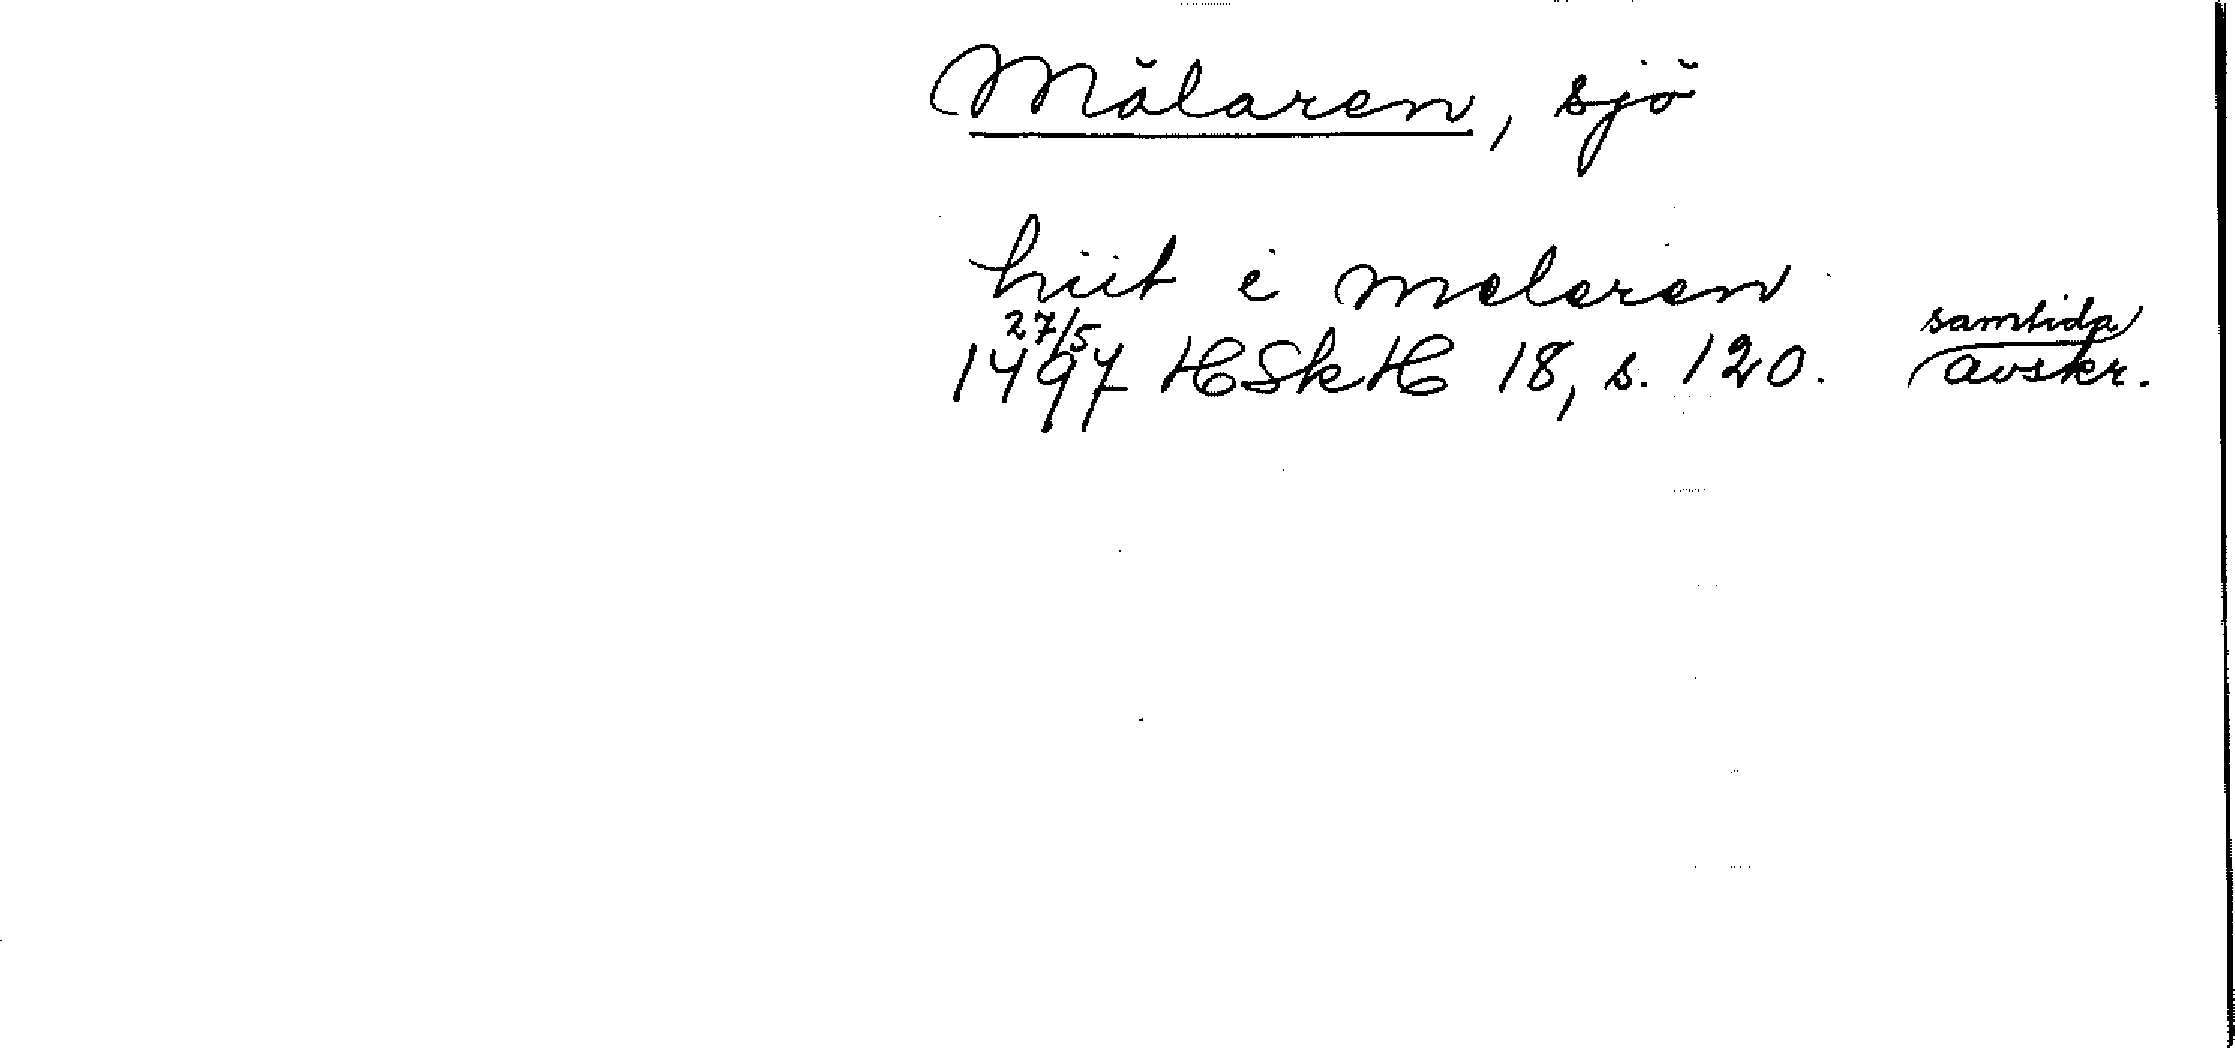 Mälaren, sjö
hiit i melaren
27/5 samtida
1497 HSkH 18, s. 120. avskr.